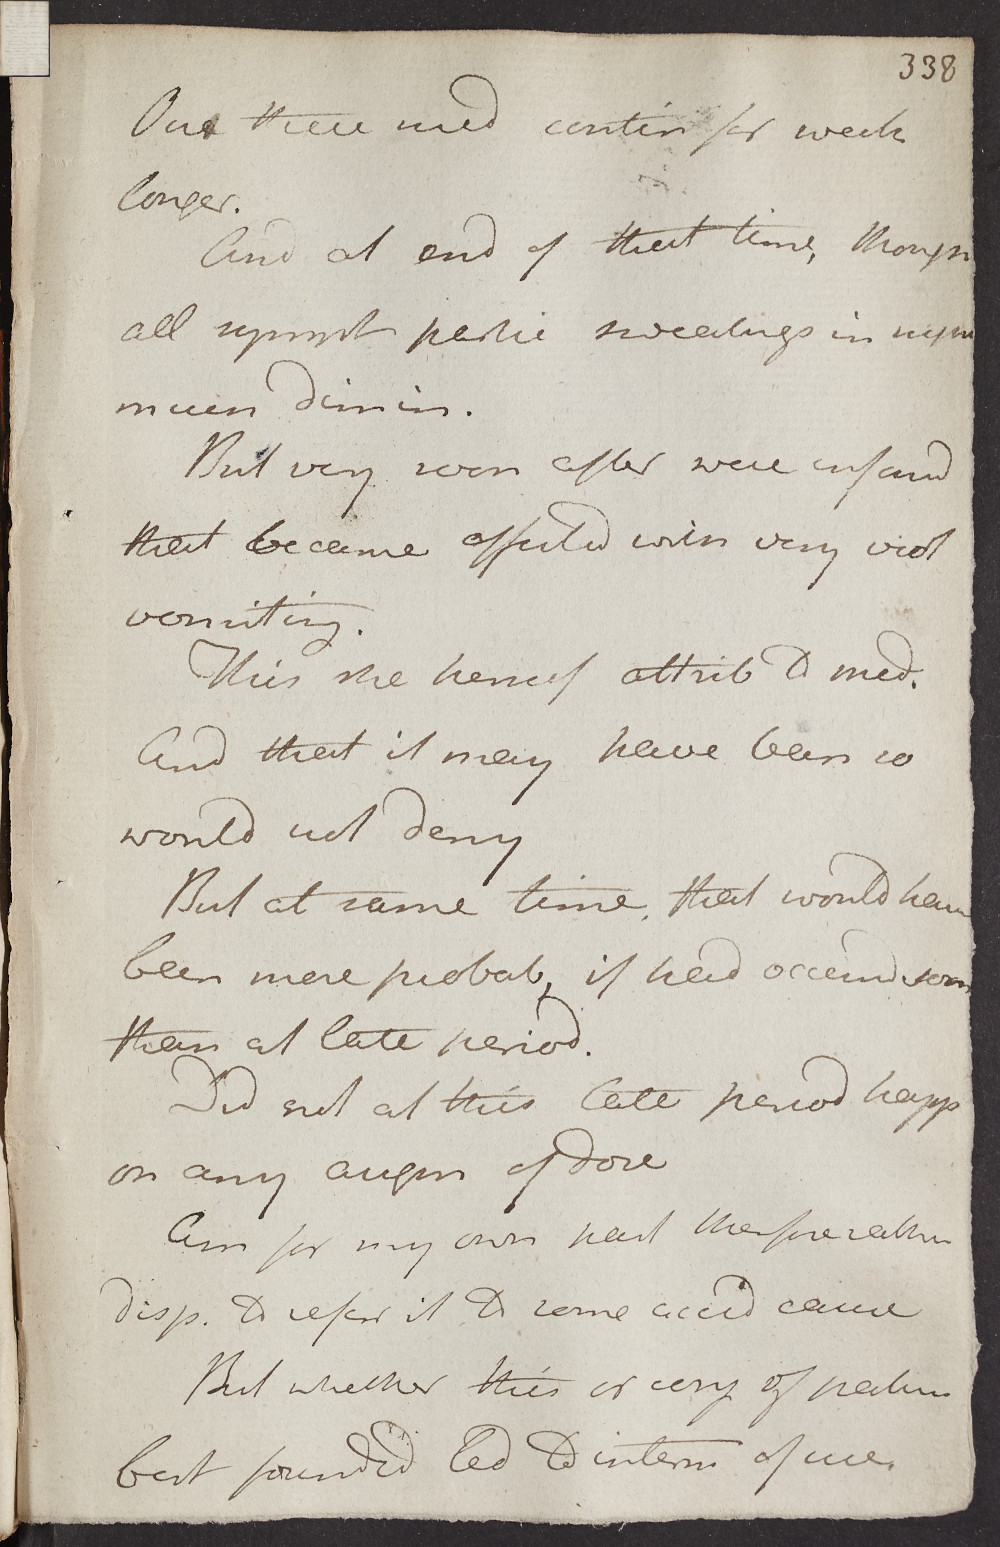 338
But these med contin for week
longer.
And at end of that time, though
all sympt partic swealings in
much dimin.
But very soon after were inform
that became affected with very viol
vomiting.
This she herself attrib to med.
And that it may have been so
would not deny
But at same time, that would have
been more probab, if had occurrd soon
than at late period.
Did not at this late period happ
on any augm of dose
Am for my own part therefore rather
disp. to refer it to some accid cause
But whether this or conj of patien
best founded led to interm of use.